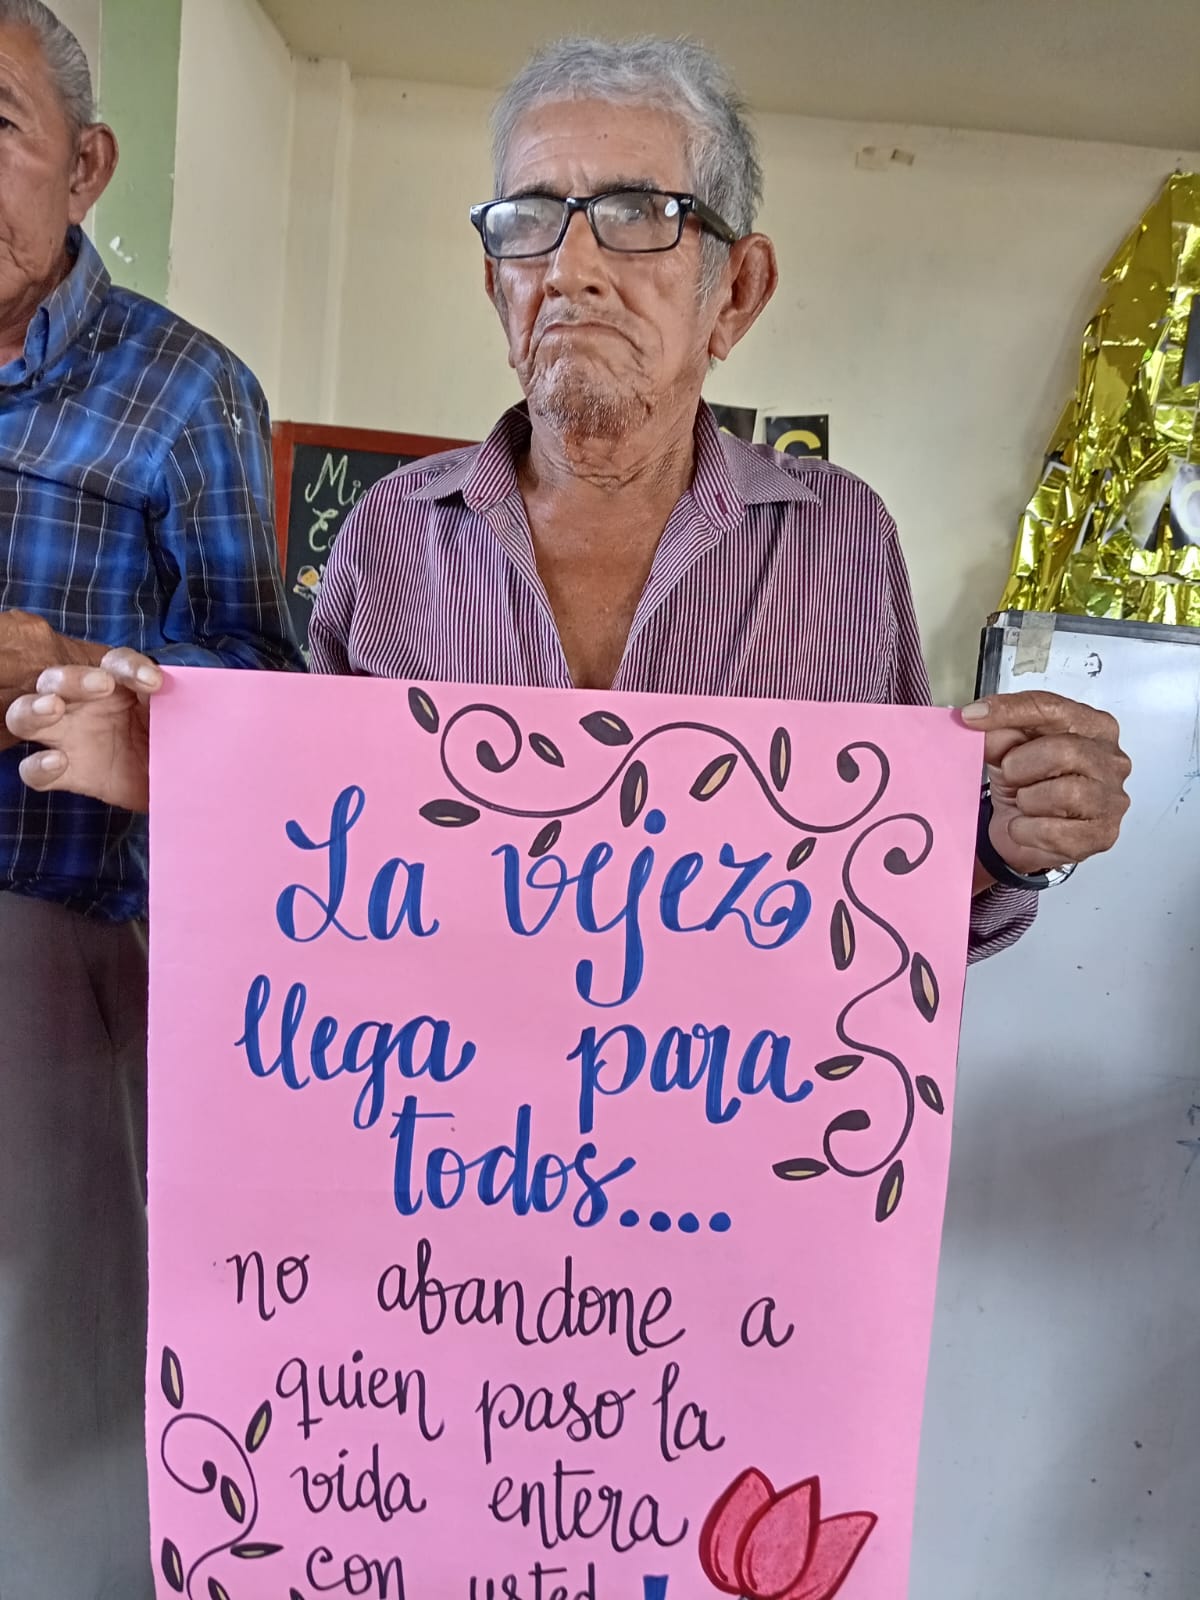 La vejez
llega para
todos....
no abandone a
quien paso la
vida entera
con usted!
Mi
G